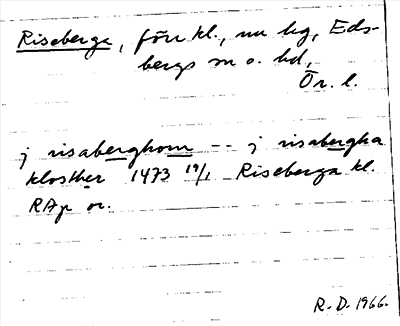 Riseberga, förr kl., nu hg, Eds-
bergs sn o. hd,
Ör. l.
j risaberghom -- j risabergha
kloster 1473 19/1 Riseberga kl.
RAp or.
R. D. 1966.